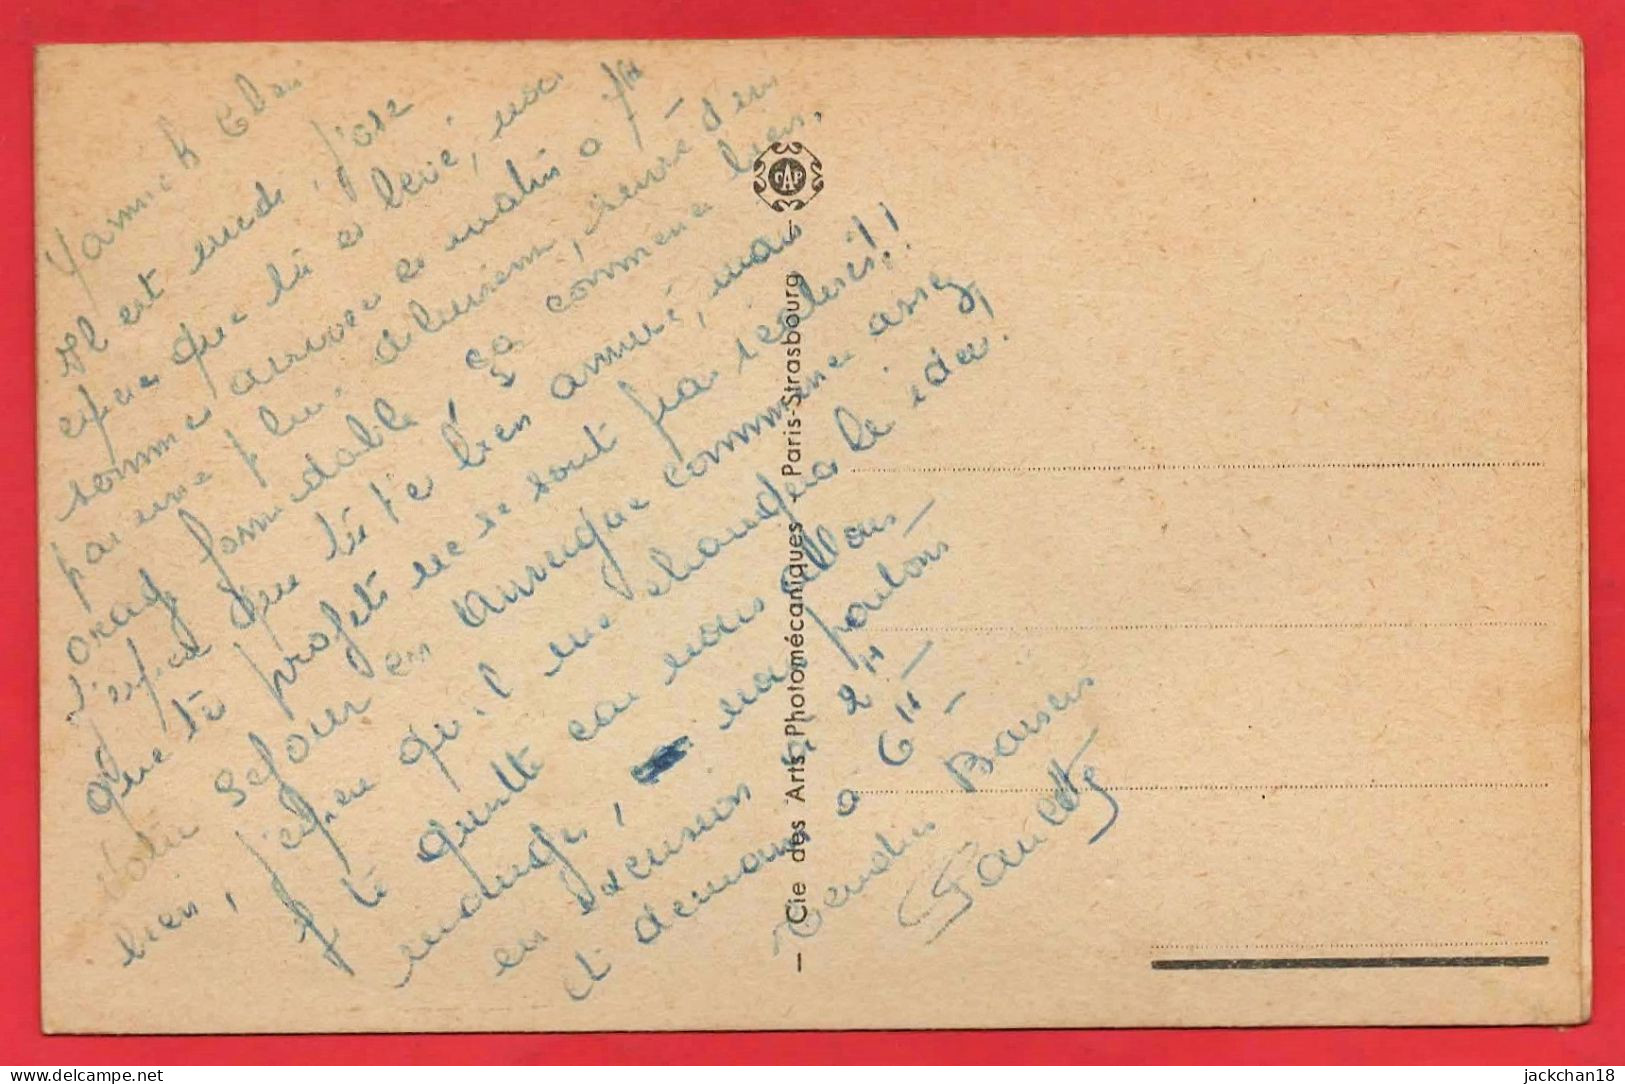 Yannick
Il est midi, j'ose
que tu es levé, nous
sommes arrivés ce matin à 7H
par une pluie diluvienne, suivie d'un
orage formidable, ça commence bien.
J'espère que tu t'es bien amusé, mais
que tes projets ne se sont pas réalisés!!
Votre séjour en Auvergne commence assez
bien, j'espère qu'il ne changera le idées.
Je te quitte car nous allons
manger, nous partons
en excursion à 2H
et demain à 6H
Tendres Baisers
Paulette
— Cie des Arts Photomécaniques - Paris-Strasbourg —
CAP
jackchan18